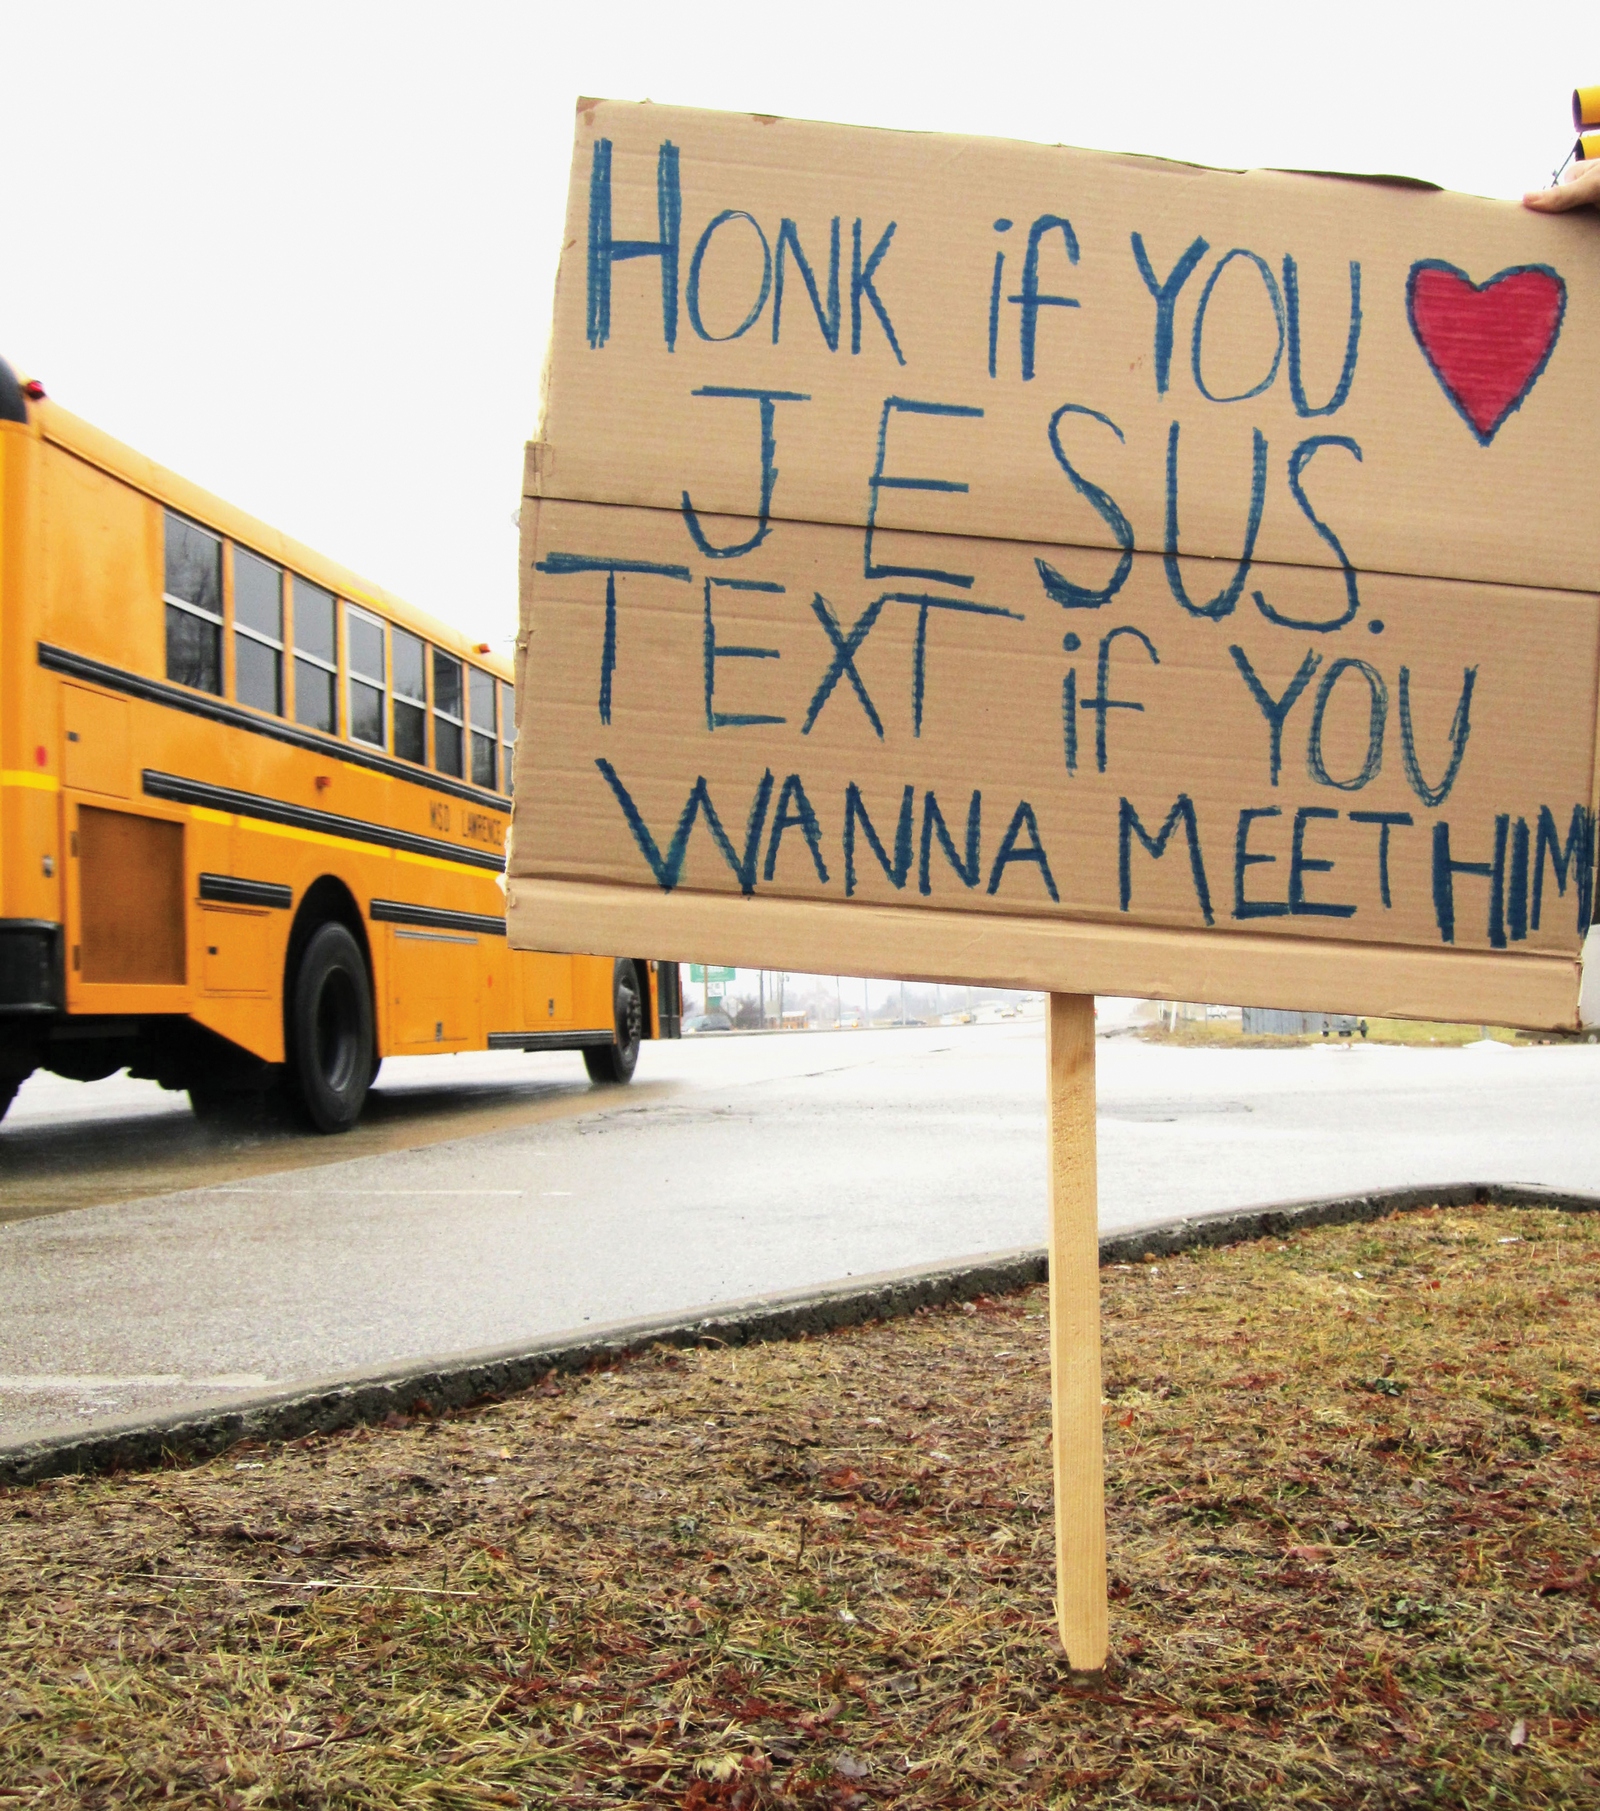 HONK if YOU ❤
JESUS.
TEXT if YOU
WANNA MEET HIM!
MSD LAWRENCE